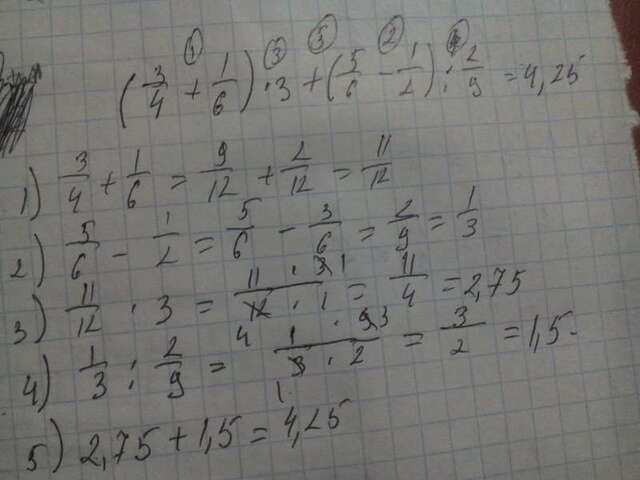 ① ③ ⑤ ② ④
(3/4 + 1/6) · 3 + (5/6 - 1/2) : 2/9 = 4,25
1) 3/4 + 1/6 = 9/12 + 2/12 = 11/12
2) 5/6 - 1/2 = 5/6 - 3/6 = 2/9 = 1/3
3) 11/12 · 3 = 11 · 3 1/12 · 1 = 11/4 = 2,75
4) 1/3 : 2/9 = 4 1 · 9 3/3 · 2 = 3/2 = 1,5
1
5) 2,75 + 1,5 = 4,25